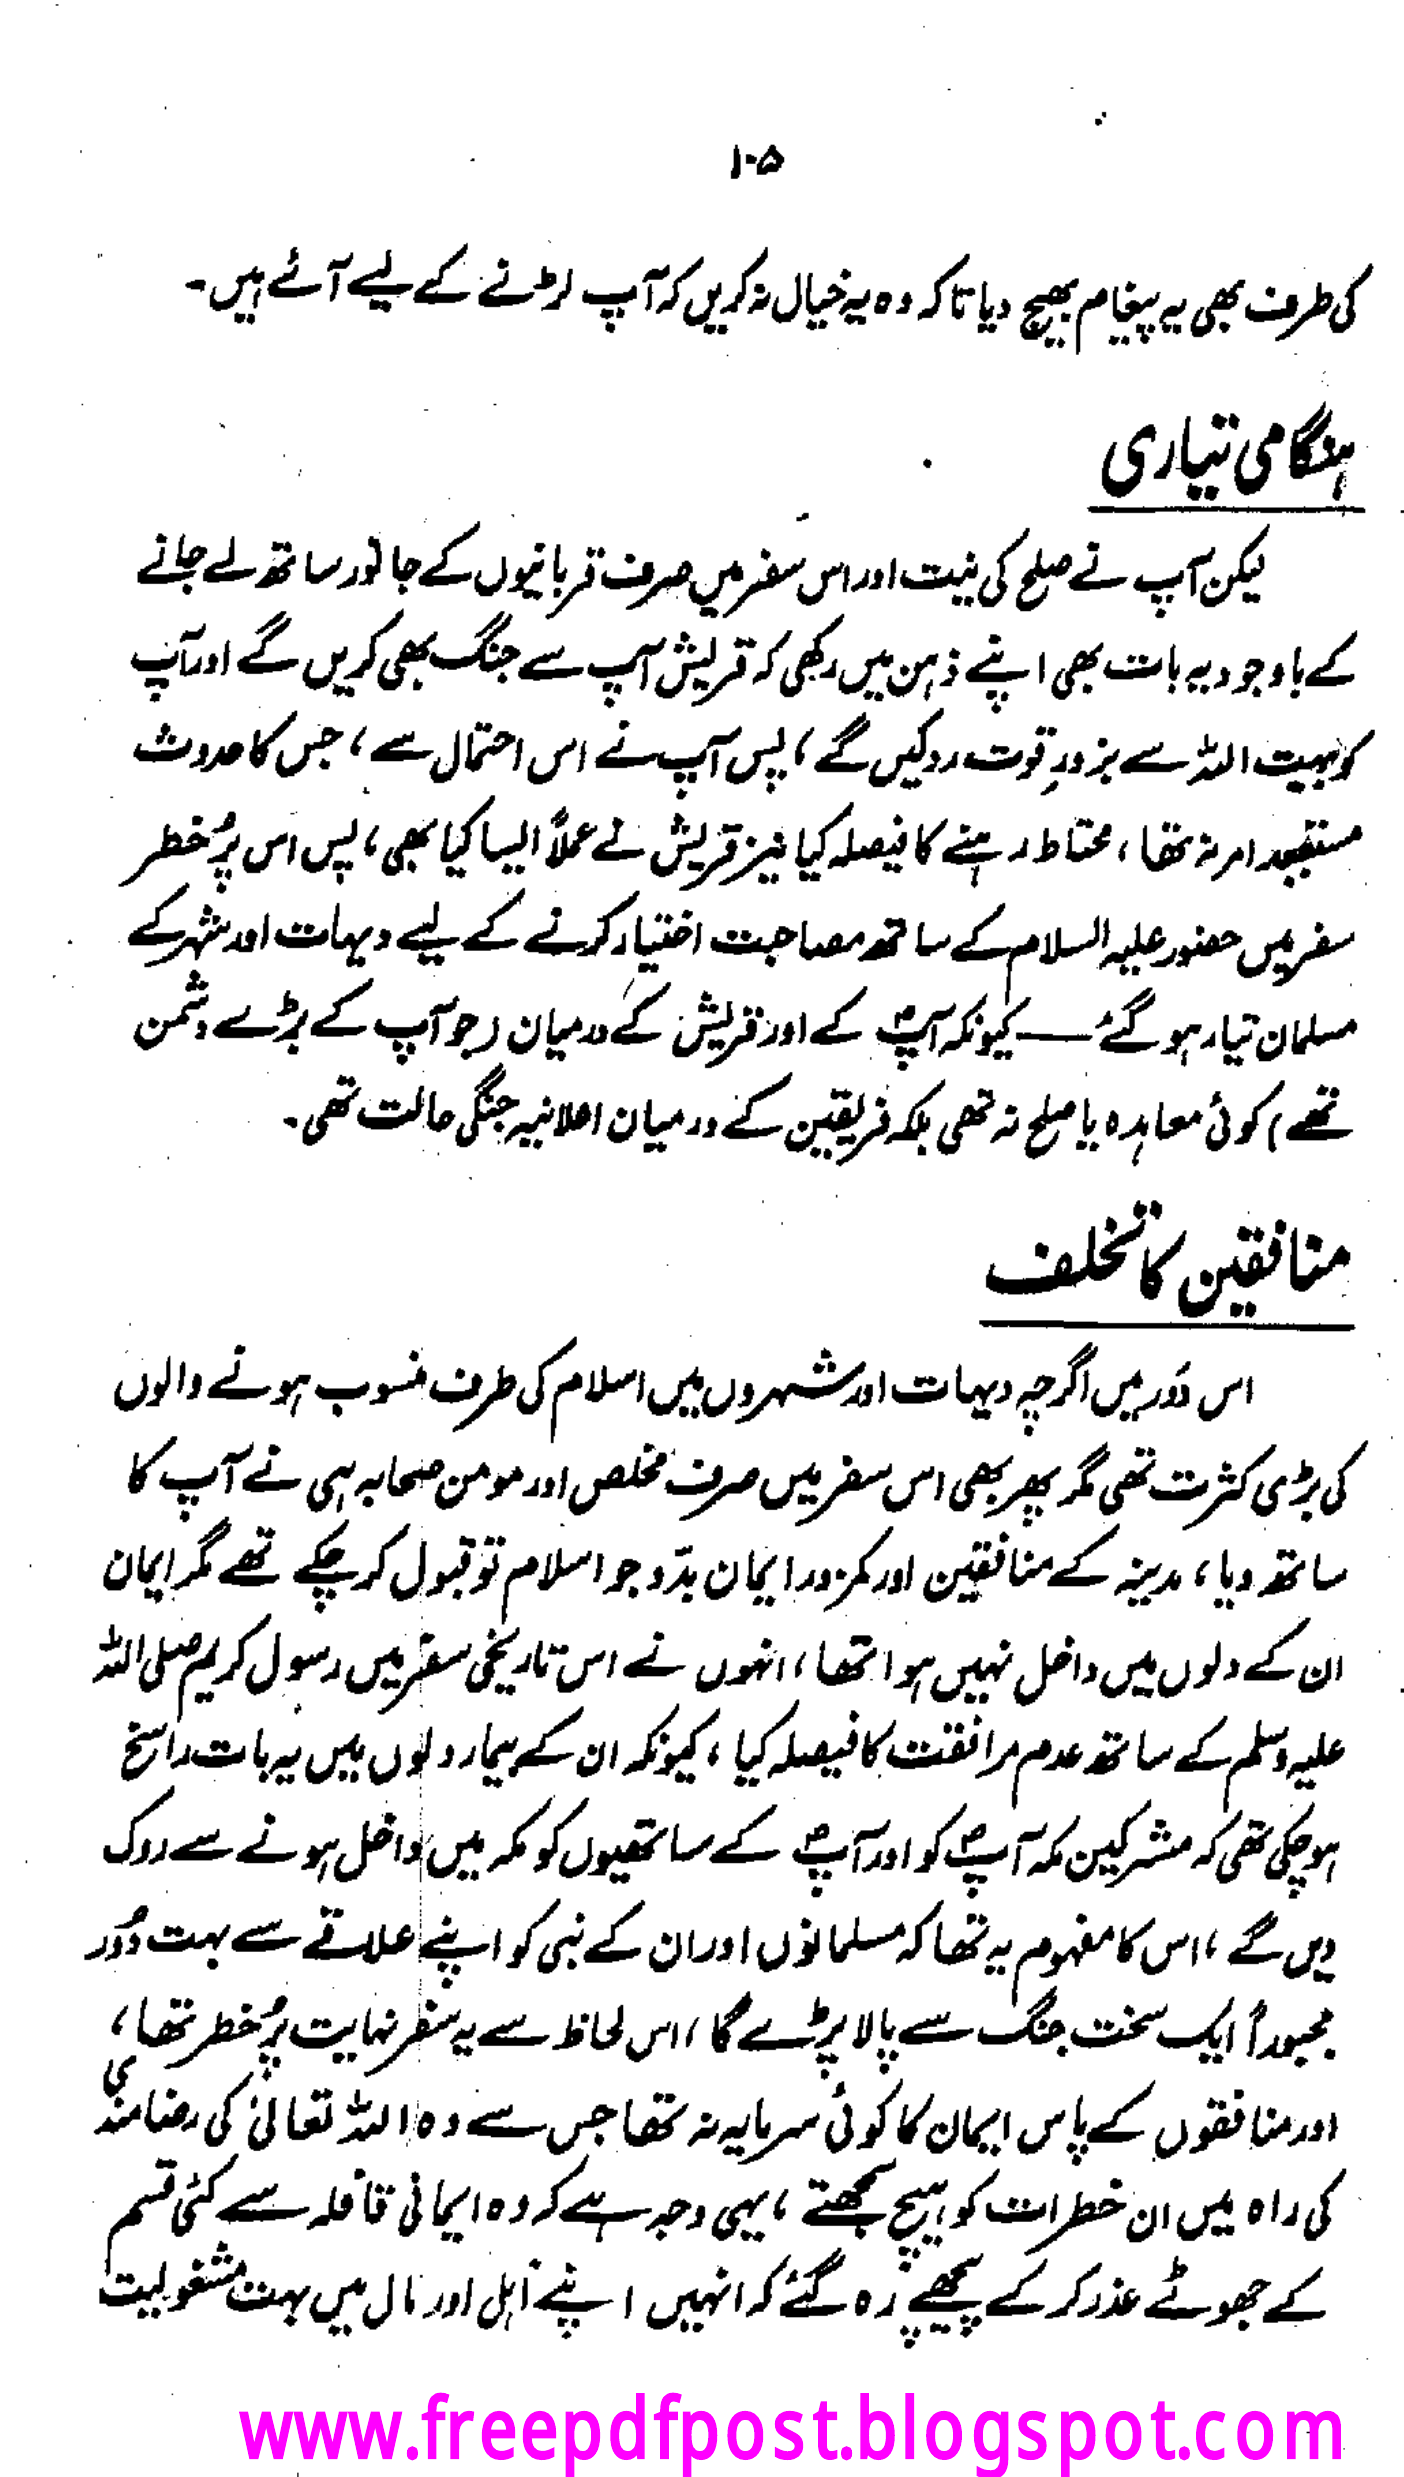 ۱۰۵
کی طرف بھی یہ پیغام بھیج دیا تاکہ وہ یہ خیال نہ کریں کہ آپ لڑنے کے لیے آئے ہیں۔
ہنگامی تیاری
لیکن آپ نے صلح کی نیت اور اس سفر میں صرف قربانیوں کے جانور ساتھ لے جانے
کے باوجود یہ بات بھی اپنے ذہن میں رکھی کہ قریش آپ سے جنگ بھی کریں گے اور آپ
کو بیت اللہ سے بزورِ قوت روکیں گے، پس آپ نے اس احتمال سے، جس کا حدوث
مستبعد امر نہ تھا، محتاط رہنے کا فیصلہ کیا نیز قریش نے عملاً ایسا کیا بھی، پس اس پُر خطر
سفر میں حضور علیہ السلام کے ساتھ مصاحبت اختیار کرنے کے لیے دیہات اور شہر کے
مسلمان تیار ہو گئے — کیونکہ آپؐ کے اور قریش کے درمیان (جو آپ کے بڑے دشمن
تھے) کوئی معاہدہ یا صلح نہ تھی بلکہ فریقین کے درمیان اعلانیہ جنگی حالت تھی۔
منافقین کا تخلف
اس دَور میں اگرچہ دیہات اور شہروں میں اسلام کی طرف منسوب ہونے والوں
کی بڑی کثرت تھی مگر پھر بھی اس سفر میں صرف مخلص اور مومن صحابہ ہی نے آپ کا
ساتھ دیا، مدینہ کے منافقین اور کمزور ایمان بدّو جو اسلام تو قبول کر چکے تھے مگر ایمان
ان کے دلوں میں داخل نہیں ہوا تھا، انہوں نے اس تاریخی سفر میں رسول کریم صلی اللہ
علیہ وسلم کے ساتھ عدم مرافقت کا فیصلہ کیا، کیونکہ ان کے بیمار دلوں میں یہ بات راسخ
ہو چکی تھی کہ مشرکین مکہ آپؐ کو اور آپؐ کے ساتھیوں کو مکہ میں داخل ہونے سے روک
دیں گے، اس کا مفہوم یہ تھا کہ مسلمانوں اور ان کے نبی کو اپنے علاقے سے بہت دُور
مجبوراً ایک سخت جنگ سے پالا پڑے گا، اس لحاظ سے یہ سفر نہایت پُر خطر تھا،
اور منافقوں کے پاس ایمان کا کوئی سرمایہ نہ تھا جس سے وہ اللہ تعالیٰ کی رضامندی
کی راہ میں ان خطرات کو ہیچ سمجھتے، یہی وجہ ہے کہ وہ ایمانی قافلہ سے کئی قسم
کے جھوٹے عذر کر کے پیچھے رہ گئے کہ انہیں اپنے اہل اور مال میں بہت مشغولیت
www.freepdfpost.blogspot.com